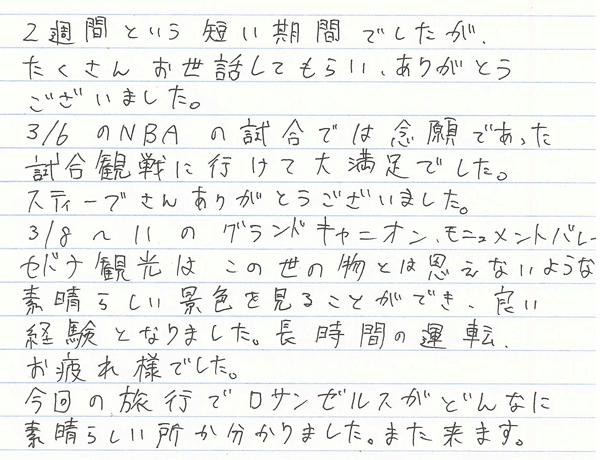 2週間という短い期間でしたが、
たくさんお世話してもらい、ありがとう
ございました。
3/6のNBAの試合では念願であった
試合観戦に行けて大満足でした。
スティーブさんありがとうございました。
3/8〜11のグランドキャニオン、モニュメントバレー
セドナ観光はこの世の物とは思えないような
素晴らしい景色を見ることができ、良い
経験となりました。長時間の運転、
お疲れ様でした。
今回の旅行でロサンゼルスがどんなに
素晴らしい所か分かりました。また来ます。